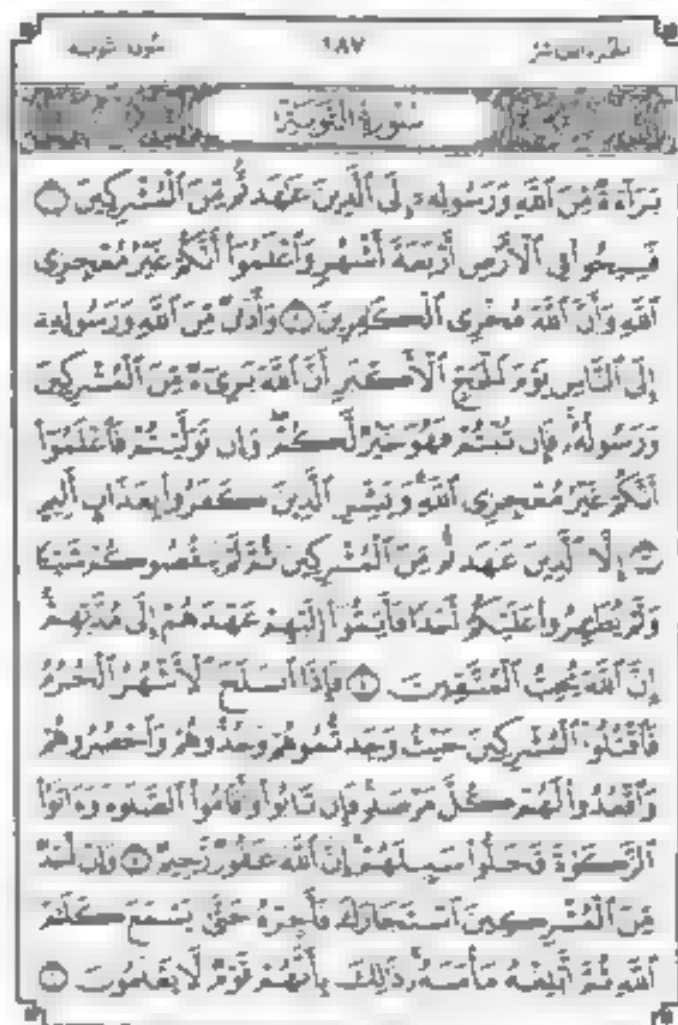 سُورَةُ التَّوْبَةِ ١٨٧ الجُزءُ العَاشِرُ
سُورَةُ التَّوْبَةِ
بَرَآءَةٌ مِّنَ ٱللَّهِ وَرَسُولِهِۦٓ إِلَى ٱلَّذِينَ عَٰهَدتُّم مِّنَ ٱلْمُشْرِكِينَ ١
فَسِيحُوا۟ فِى ٱلْأَرْضِ أَرْبَعَةَ أَشْهُرٍ وَٱعْلَمُوٓا۟ أَنَّكُمْ غَيْرُ مُعْجِزِى
ٱللَّهِ وَأَنَّ ٱللَّهَ مُخْزِى ٱلْكَٰفِرِينَ ٢ وَأَذَٰنٌ مِّنَ ٱللَّهِ وَرَسُولِهِۦٓ
إِلَى ٱلنَّاسِ يَوْمَ ٱلْحَجِّ ٱلْأَكْبَرِ أَنَّ ٱللَّهَ بَرِىٓءٌ مِّنَ ٱلْمُشْرِكِينَ
وَرَسُولُهُۥ فَإِن تُبْتُمْ فَهُوَ خَيْرٌ لَّكُمْ وَإِن تَوَلَّيْتُمْ فَٱعْلَمُوٓا۟
أَنَّكُمْ غَيْرُ مُعْجِزِى ٱللَّهِ وَبَشِّرِ ٱلَّذِينَ كَفَرُوا۟ بِعَذَابٍ أَلِيمٍ
٣ إِلَّا ٱلَّذِينَ عَٰهَدتُّم مِّنَ ٱلْمُشْرِكِينَ ثُمَّ لَمْ يَنقُصُوكُمْ شَيْـًٔا
وَلَمْ يُظَٰهِرُوا۟ عَلَيْكُمْ أَحَدًا فَأَتِمُّوٓا۟ إِلَيْهِمْ عَهْدَهُمْ إِلَىٰ مُدَّتِهِمْ
إِنَّ ٱللَّهَ يُحِبُّ ٱلْمُتَّقِينَ ٤ فَإِذَا ٱنسَلَخَ ٱلْأَشْهُرُ ٱلْحُرُمُ
فَٱقْتُلُوا۟ ٱلْمُشْرِكِينَ حَيْثُ وَجَدتُّمُوهُمْ وَخُذُوهُمْ وَٱحْصُرُوهُمْ
وَٱقْعُدُوا۟ لَهُمْ كُلَّ مَرْصَدٍ فَإِن تَابُوا۟ وَأَقَامُوا۟ ٱلصَّلَوٰةَ وَءَاتَوُا۟
ٱلزَّكَوٰةَ فَخَلُّوا۟ سَبِيلَهُمْ إِنَّ ٱللَّهَ غَفُورٌ رَّحِيمٌ ٥ وَإِنْ أَحَدٌ
مِّنَ ٱلْمُشْرِكِينَ ٱسْتَجَارَكَ فَأَجِرْهُ حَتَّىٰ يَسْمَعَ كَلَٰمَ
ٱللَّهِ ثُمَّ أَبْلِغْهُ مَأْمَنَهُۥ ذَٰلِكَ بِأَنَّهُمْ قَوْمٌ لَّا يَعْلَمُونَ ٦